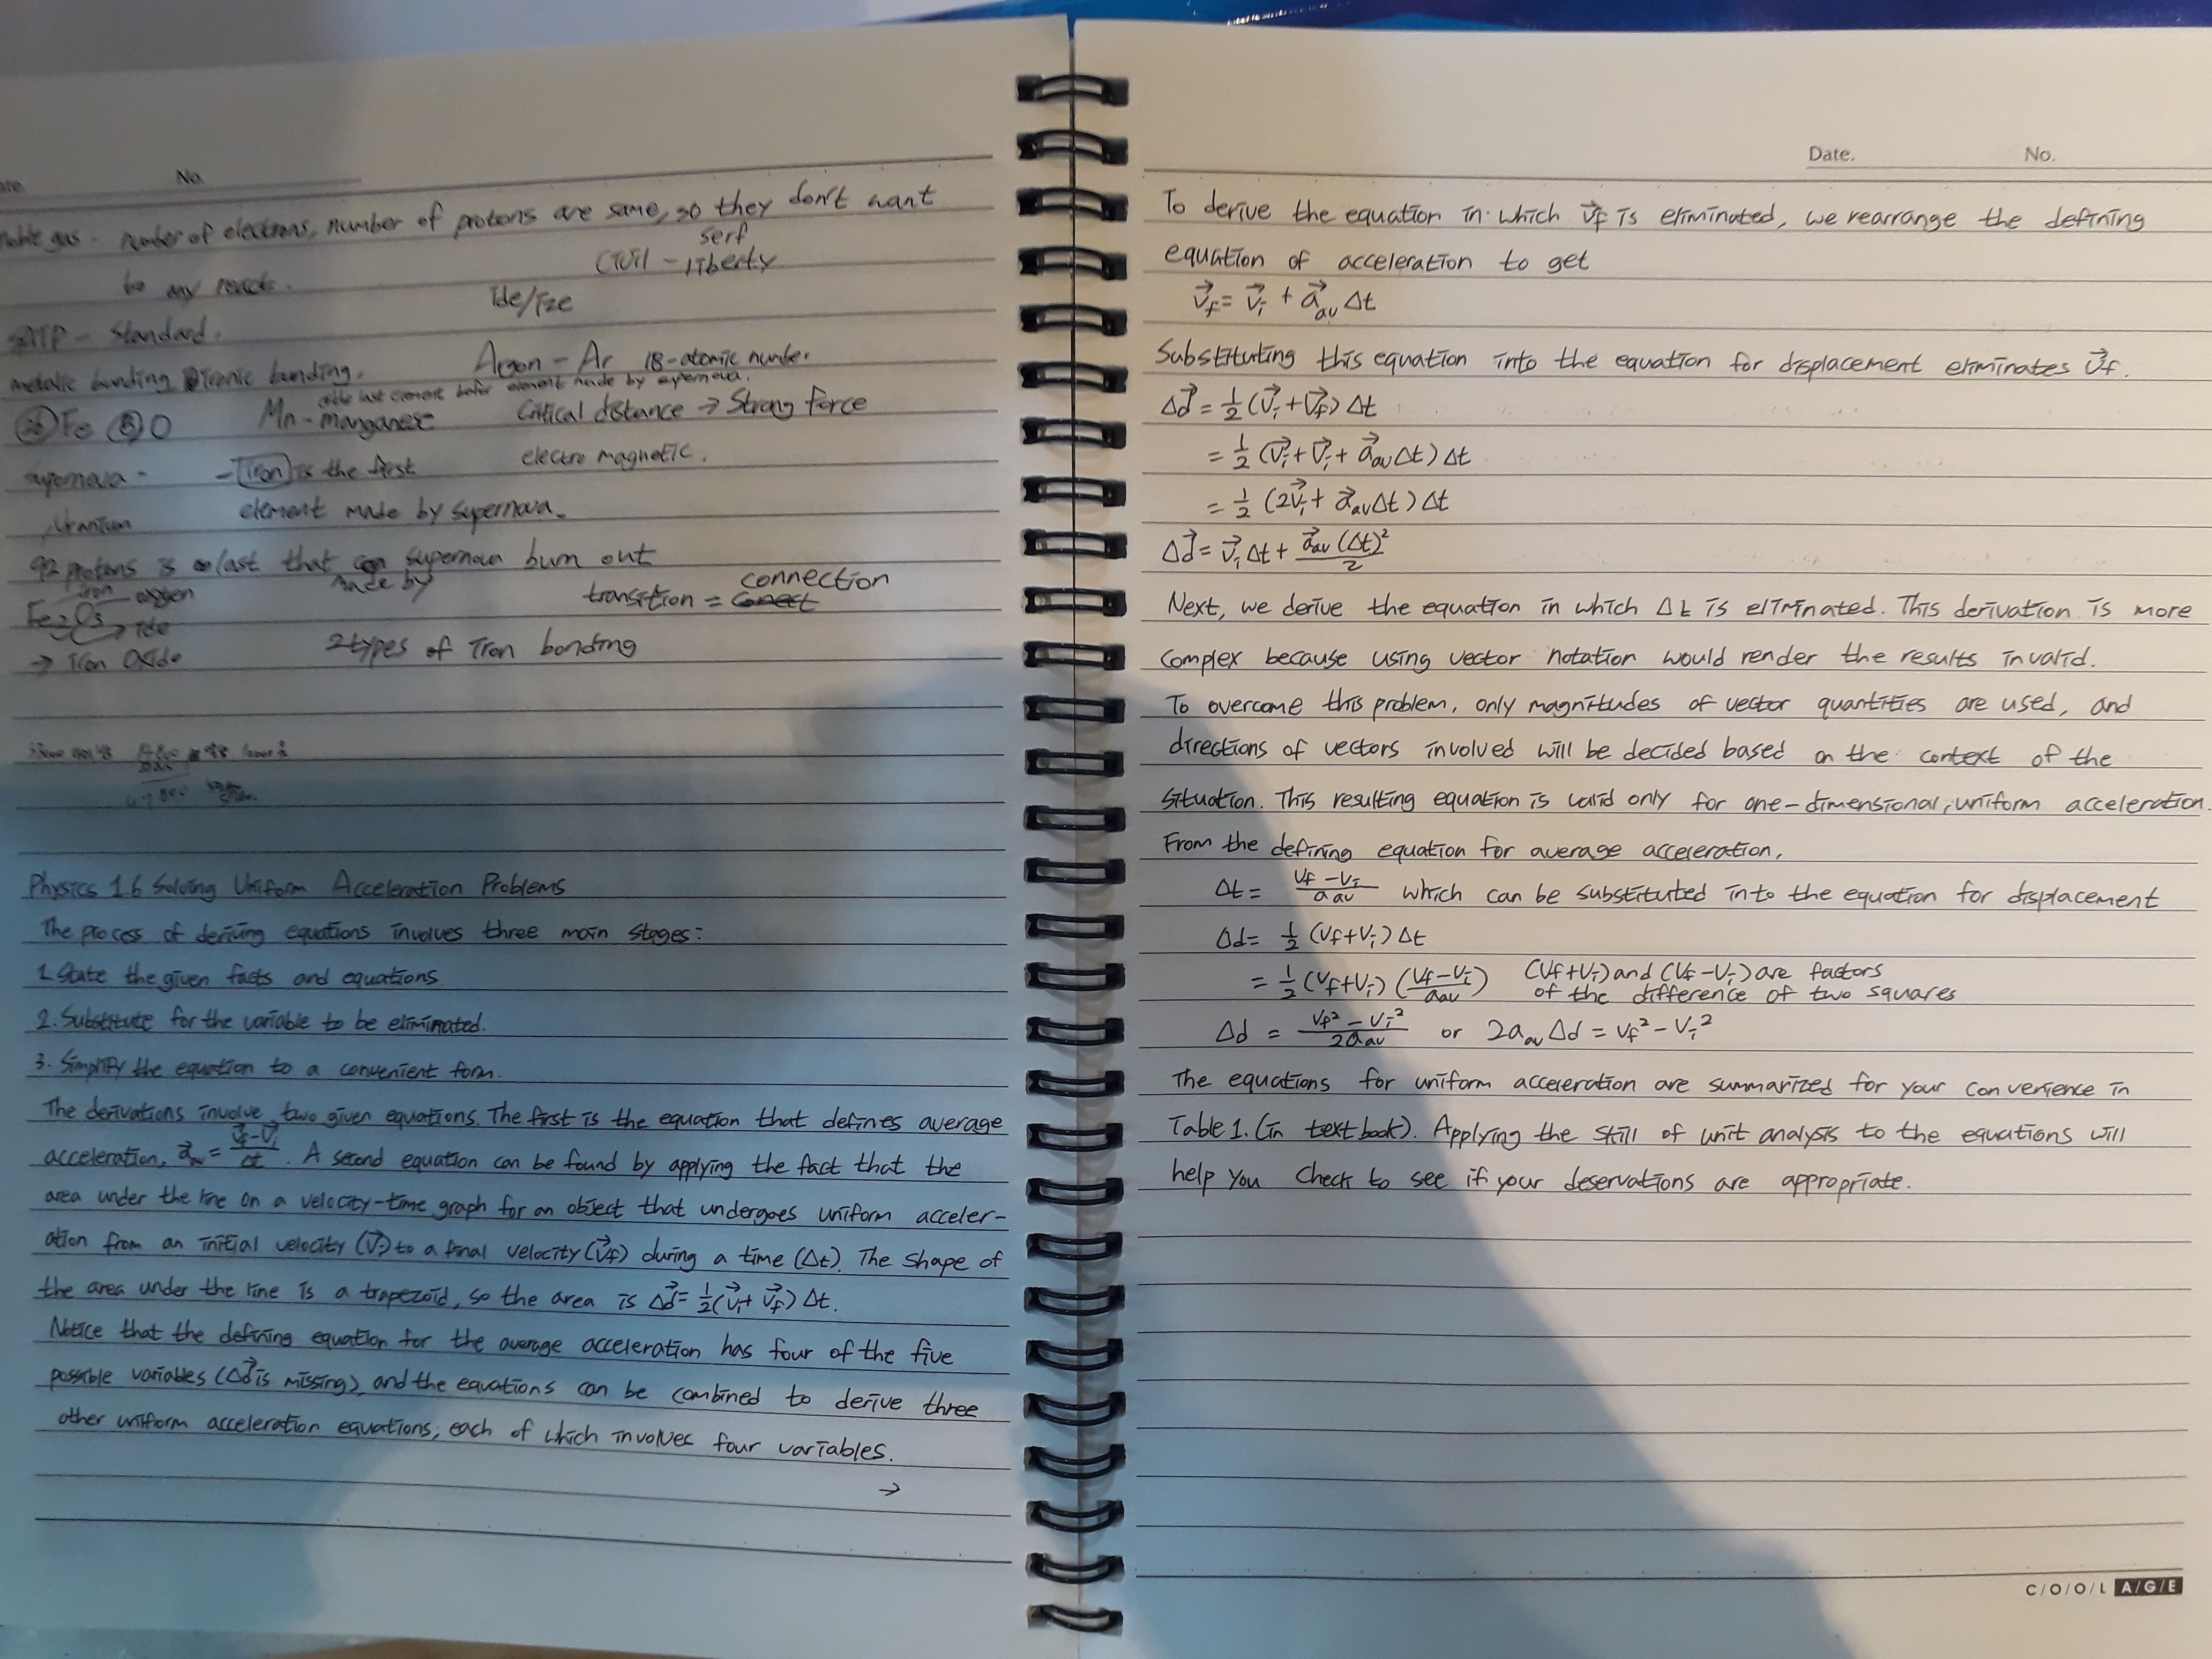 No.
noble gas - number of electrons, number of protons are same, so they don't want
serf
to any reacts.
Civil - liberty
ide/ize
SATP - Standard.
metalic bonding ironic bonding.
Argon - Ar 18-atomic number
last element element made by supernova.
26 Fe 8 O
Mn - manganese
Critical distance → Strong force
supernova -
- Iron is the first
electro magnetic.
Uranium
element made by supernova.
92 protons is last that can supernova burn out
made by
iron oxygen
transition = Conect connection
Fe2O3
→ ide
→ Iron Oxide
2 types of Iron bonding
Physics 1.6 Solving Uniform Acceleration Problems
The process of deriving equations involves three main stages:
1. State the given facts and equations.
2. Substitute for the variable to be eliminated.
3. Simplify the equation to a convenient form.
The derivations involve two given equations. The first is the equation that defines average
acceleration, a⃗av = (v⃗f - v⃗i)/Δt. A second equation can be found by applying the fact that the
area under the line on a velocity-time graph for an object that undergoes uniform acceler-
ation from an initial velocity (v⃗i) to a final velocity (v⃗f) during a time (Δt). The shape of
the area under the line is a trapezoid, so the area is Δd⃗ = ½(v⃗i + v⃗f) Δt.
Notice that the defining equation for the average acceleration has four of the five
possible variables (Δd⃗ is missing), and the equations can be combined to derive three
other uniform acceleration equations; each of which involves four variables.
→
Date. No.
To derive the equation in which v⃗f is eliminated, we rearrange the defining
equation of acceleration to get
v⃗f = v⃗i + a⃗av Δt
Substituting this equation into the equation for displacement eliminates v⃗f.
Δd⃗ = ½ (v⃗i + v⃗f) Δt
= ½ (v⃗i + v⃗i + a⃗av Δt) Δt
= ½ (2v⃗i + a⃗av Δt) Δt
Δd⃗ = v⃗i Δt + a⃗av (Δt)²/2
Next, we derive the equation in which Δt is eliminated. This derivation is more
complex because using vector notation would render the results invalid.
To overcome this problem, only magnitudes of vector quantities are used, and
directions of vectors involved will be decided based on the context of the
situation. This resulting equation is valid only for one-dimensional, uniform acceleration.
From the defining equation for average acceleration,
Δt = (vf - vi)/aav which can be substituted into the equation for displacement
Δd = ½ (vf + vi) Δt
= ½ (vf + vi) ((vf - vi)/aav) (vf + vi) and (vf - vi) are factors
of the difference of two squares
Δd = (vf² - vi²)/2aav or 2aav Δd = vf² - vi²
The equations for uniform acceleration are summarized for your convenience in
Table 1. (in text book). Applying the skill of unit analysis to the equations will
help you check to see if your deservations are appropriate.
C/O/O/L A/G/E